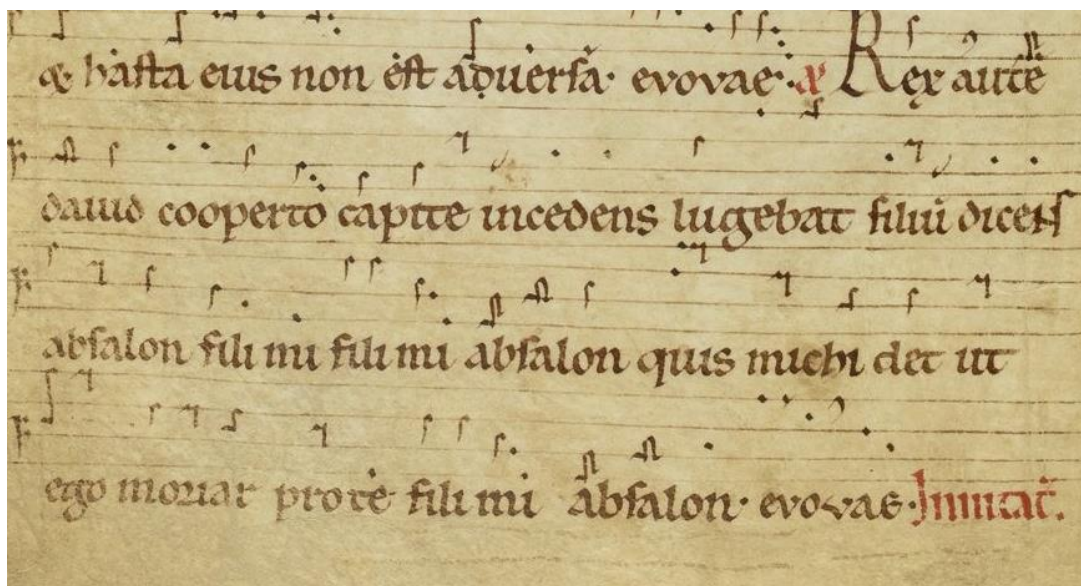 & hasta eius non est aduersa· evovae· a͞ Rex aute͞
dauid cooperto capite incedens lugebat filiu͞ dicens
absalon fili mi fili mi absalon quis michi det ut
ego moriar pro te fili mi absalon· evovae· Inuitat͞.